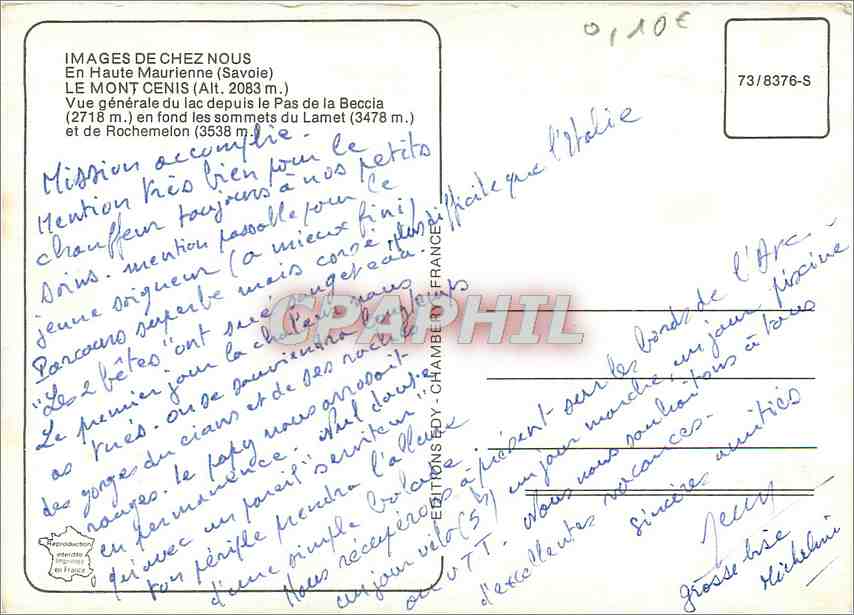 0,10€
IMAGES DE CHEZ NOUS
En Haute Maurienne (Savoie)
LE MONT CENIS (Alt. 2083 m.)
Vue générale du lac depuis le Pas de la Beccia
(2718 m.) en fond les sommets du Lamet (3478 m.)
et de Rochemelon (3538 m.)
73/8376-S
Mission accomplie.
Mention très bien pour le
chauffeur toujours à nos petits
soins. mention passable pour le
jeune soigneur (a mieux fini)
Parcours superbe mais corsé, plus difficile que l'Italie
"Les 2 bêtes" ont sué sang et eau.
Le premier jour la chaleur nous
as tués. on se souviendra longtemps
des gorges du cians et de ses roches
rouges. Le papy nous arrosait
en permanence. Nul doute
qu'avec un pareil "serviteur"
ton périple prendra l'allure
d'une simple balade
Nous récupérons à présent sur les bords de l'Arc.
un jour vélo (5h) un jour marche, un jour piscine
ou VTT Nous nous souhaitons à tous
d'excellentes vacances.
Sincères amitiés
Jenny
grosse bise
Micheline
EDITIONS EDY - CHAMBERY - FRANCE
Reproduction
interdite
Imprimée
en France
CPAPHIL